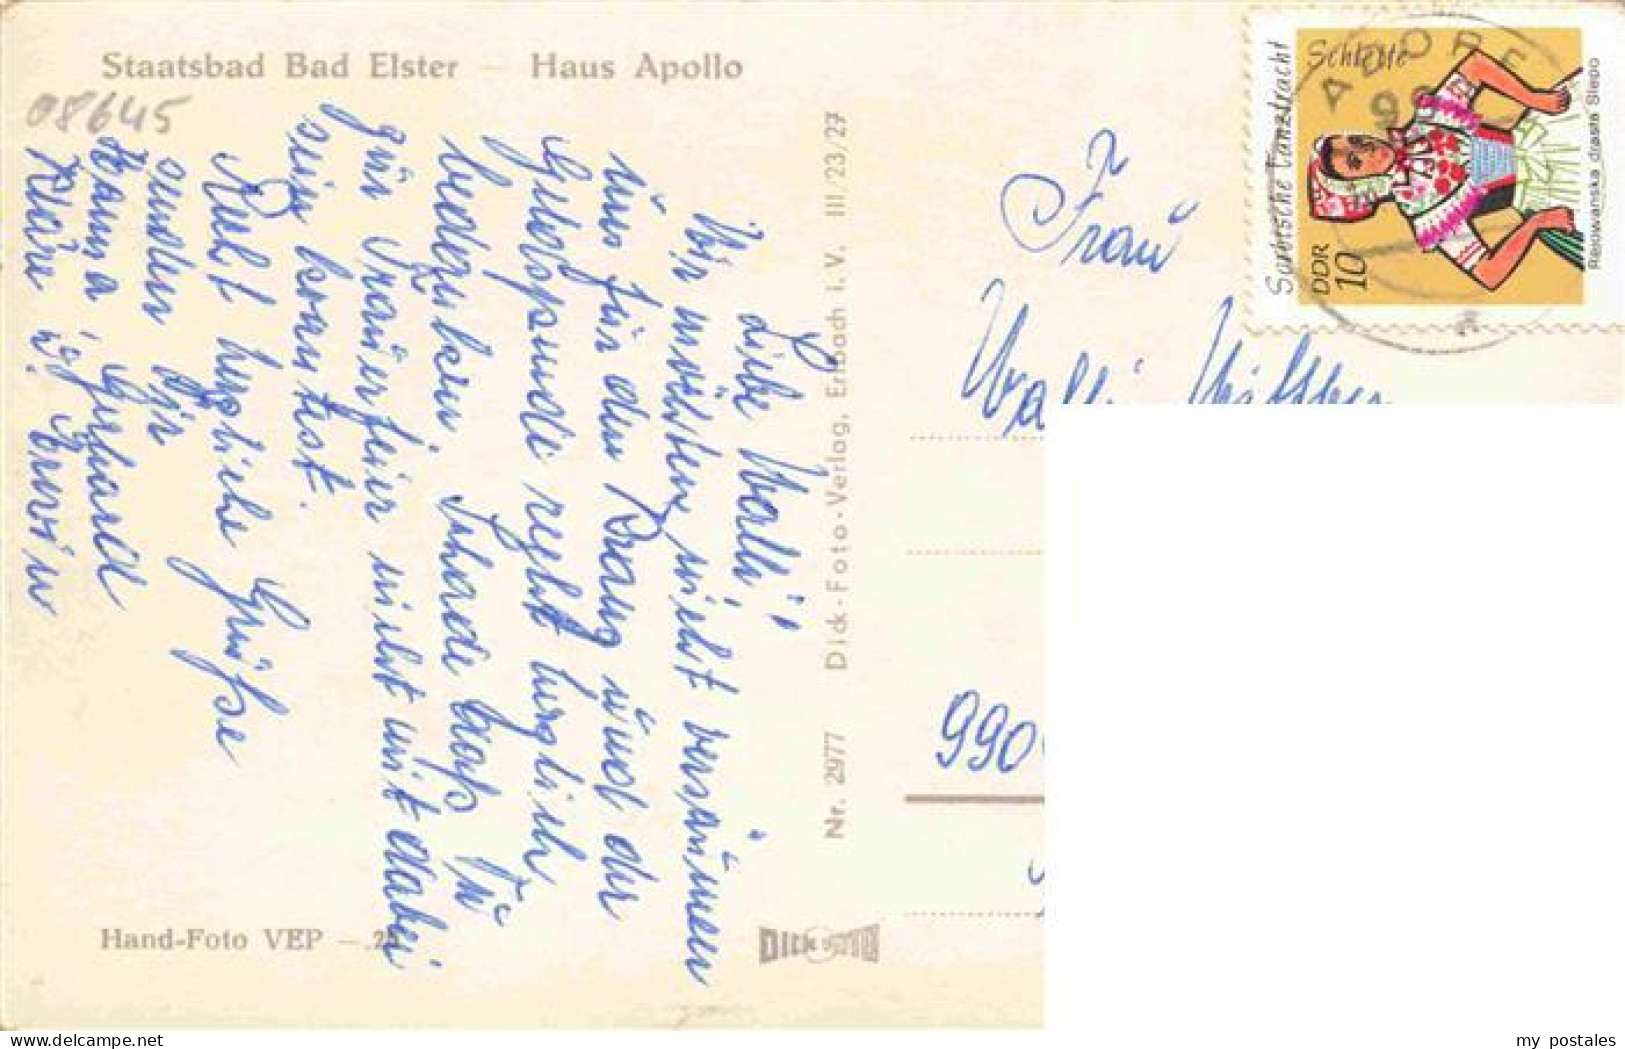 Staatsbad Bad Elster — Haus Apollo
08645
Liebe Walli!
Wir möchten nicht versäumen
uns für den Kranz und der
Geldspende recht herzlich
bedanken. Schade daß Du
zur Trauerfeier nicht mit dabei
sein konntest.
Recht herzliche Grüße
senden Dir
Hanna, Gerhard
Kläre u. Erwin
Hand-Foto VEP —
Nr. 2977 Dick-Foto-Verlag, Erlbach i. V. III/23/27
DICK
Frau
Walli
990
Sorbische Tanztracht
Schleife
DDR
10
Rejowanska drasta Slepo
ADORF
my postales